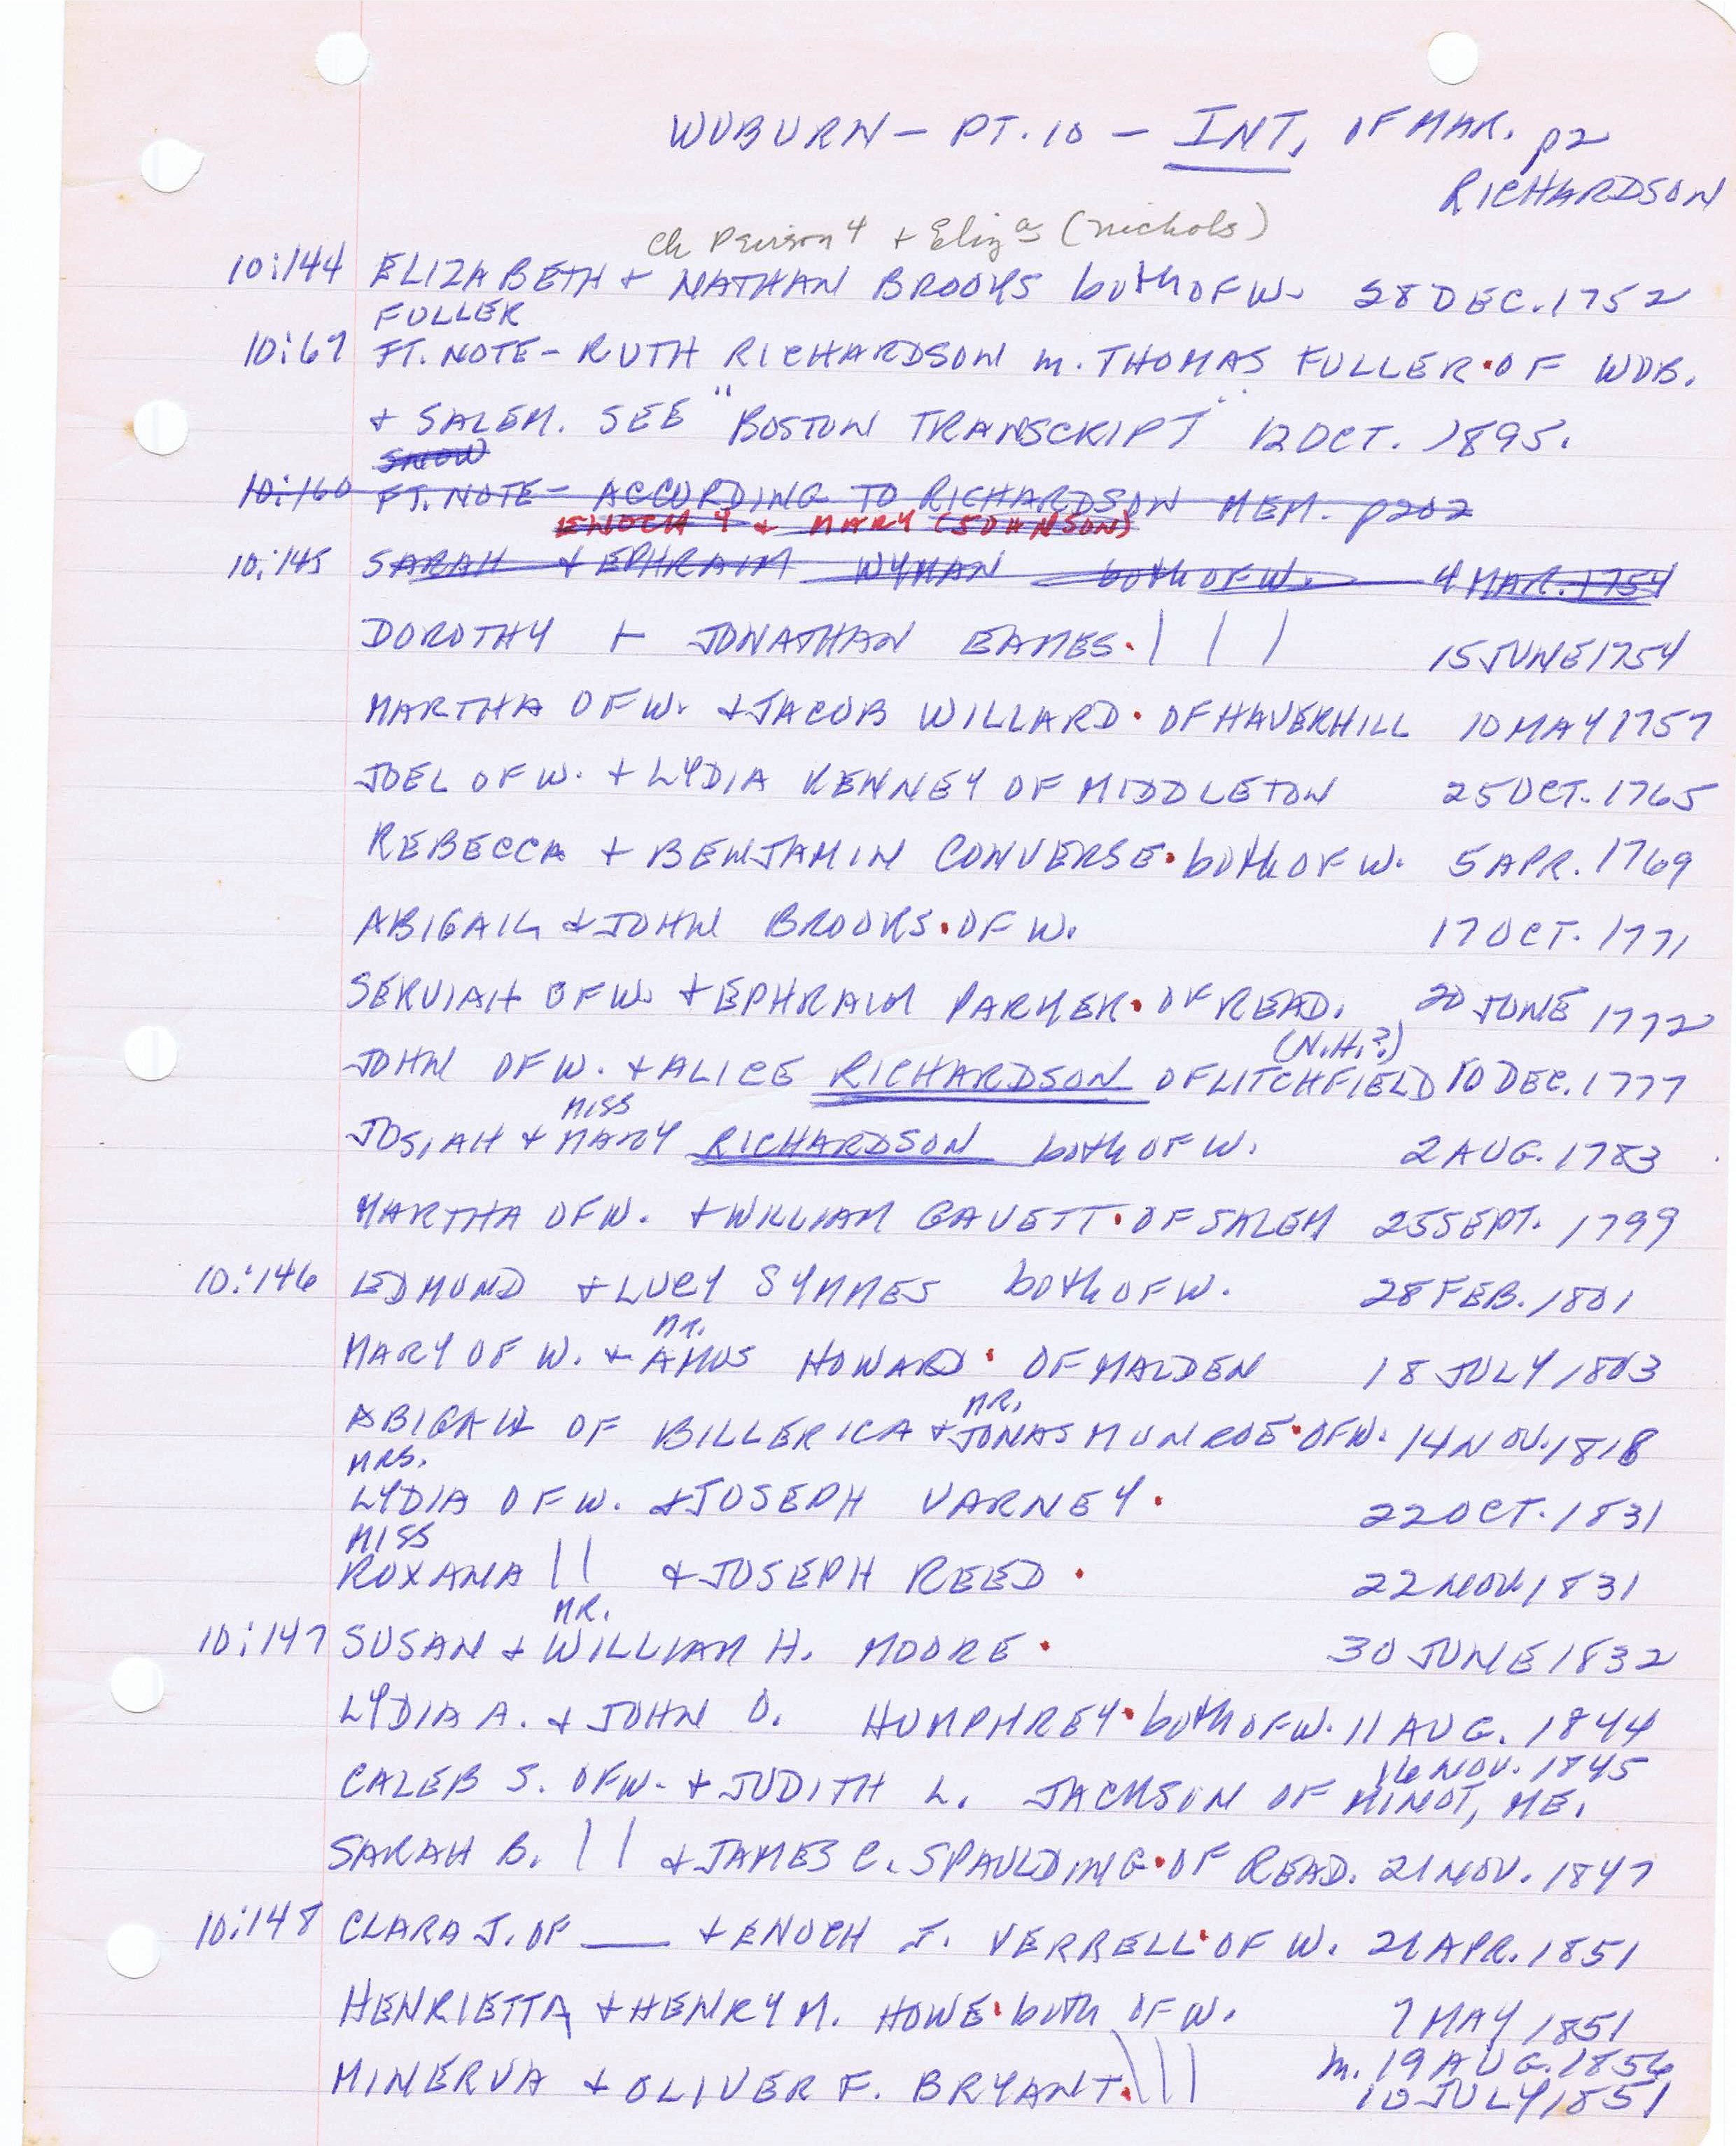 WOBURN - PT. 10 - INT. OF MAR. p2
RICHARDSON
ch Peirson 4 + Eliz (Nichols)
10:144 ELIZABETH + NATHAN BROOKS both OF W. 28 DEC. 1752
FULLER
10:67 FT. NOTE - RUTH RICHARDSON m. THOMAS FULLER. OF WOB.
+ SALEM. SEE "BOSTON TRANSCRIPT" 12 OCT. 1895.
SNOW
10:160 FT. NOTE - ACCORDING TO RICHARDSON MEM. p202
ENOCH 4 + MARY (JOHNSON)
10:145 SARAH + EPHRAIM WYMAN both OF W. 4 MAR. 1754
DOROTHY + JONATHAN EAMES. | | | 15 JUNE 1754
MARTHA OF W. + JACOB WILLARD. OF HAVERHILL 10 MAY 1757
JOEL OF W. + LYDIA KENNEY OF MIDDLETON 25 OCT. 1765
REBECCA + BENJAMIN CONVERSE. both OF W. 5 APR. 1769
ABIGAIL + JOHN BROOKS. OF W. 17 OCT. 1771
SERVIAH OF W. + EPHRAIM PARKER. OF READ. 20 JUNE 1772
(N.H.?)
JOHN OF W. + ALICE RICHARDSON OF LITCHFIELD 10 DEC. 1777
MISS
JOSIAH + MARY RICHARDSON both OF W. 2 AUG. 1783
MARTHA OF W. + WILLIAM GAVETT. OF SALEM 25 SEPT. 1799
10:146 EDMUND + LUCY SYMMES both OF W. 28 FEB. 1801
Mr.
MARY OF W. + AMOS HOWARD. OF MALDEN 18 JULY 1803
MR.
ABIGAIL OF BILLERICA + JONAS MUNROE. OF W. 14 NOV. 1818
MRS.
LYDIA OF W. + JOSEPH VARNEY. 22 OCT. 1831
MISS
ROXANA | | + JOSEPH REED. 22 NOV. 1831
MR.
10:147 SUSAN + WILLIAM H. MOORE. 30 JUNE 1832
LYDIA A. + JOHN O. HUMPHREY. both OF W. 11 AUG. 1844
16 NOV. 1845
CALEB S. OF W. + JUDITH L. JACKSON OF MINOT, ME.
SARAH B. | | + JAMES C. SPAULDING. OF READ. 21 NOV. 1847
10:148 CLARA J. OF ___ + ENOCH J. VERRELL. OF W. 21 APR. 1851
HENRIETTA + HENRY M. HOWE. both OF W. 7 MAY 1851
m. 19 AUG. 1856
MINERVA + OLIVER F. BRYANT. \ | | 10 JULY 1851